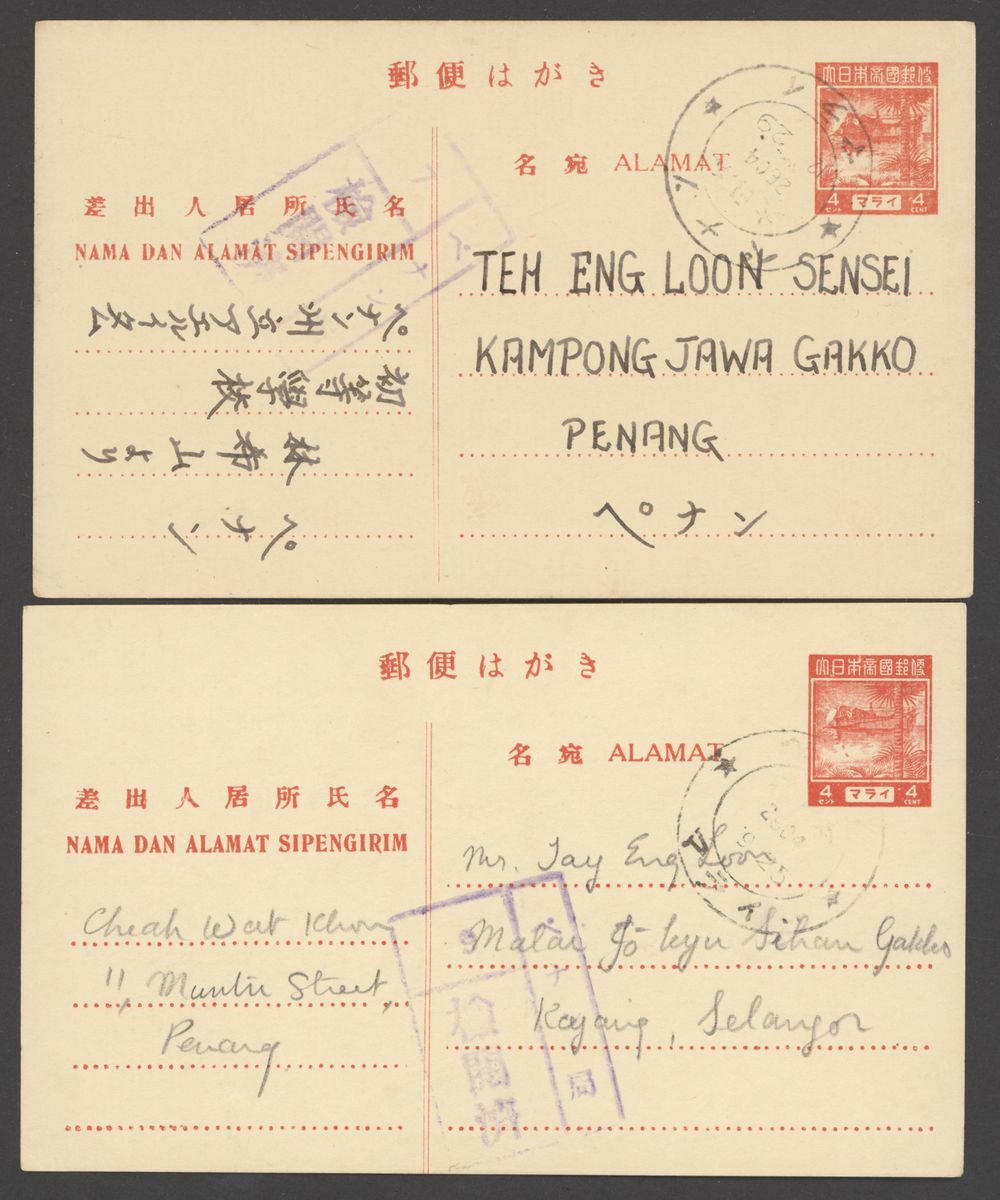 郵便はがき
大日本帝國郵便
名宛 ALAMAT
4 セント マライ 4 CENT
差出人居所氏名
NAMA DAN ALAMAT SIPENGIRIM
TEH ENG LOON SENSEI
KAMPONG JAWA GAKKO
PENANG
ペナン
ペナン州
初等學校
より
ペナン
2604
29
検閲済
ペナン
郵便はがき
大日本帝國郵便
名宛 ALAMAT
4 セント マライ 4 CENT
差出人居所氏名
NAMA DAN ALAMAT SIPENGIRIM
Mr. Tay Eng Loon
Malai Jo kyu Sihan Gakko
Kajang, Selangor
Cheah Wat Khon
11, Muntri Street,
Penang
2604
9 25
ペナン局
検閲済